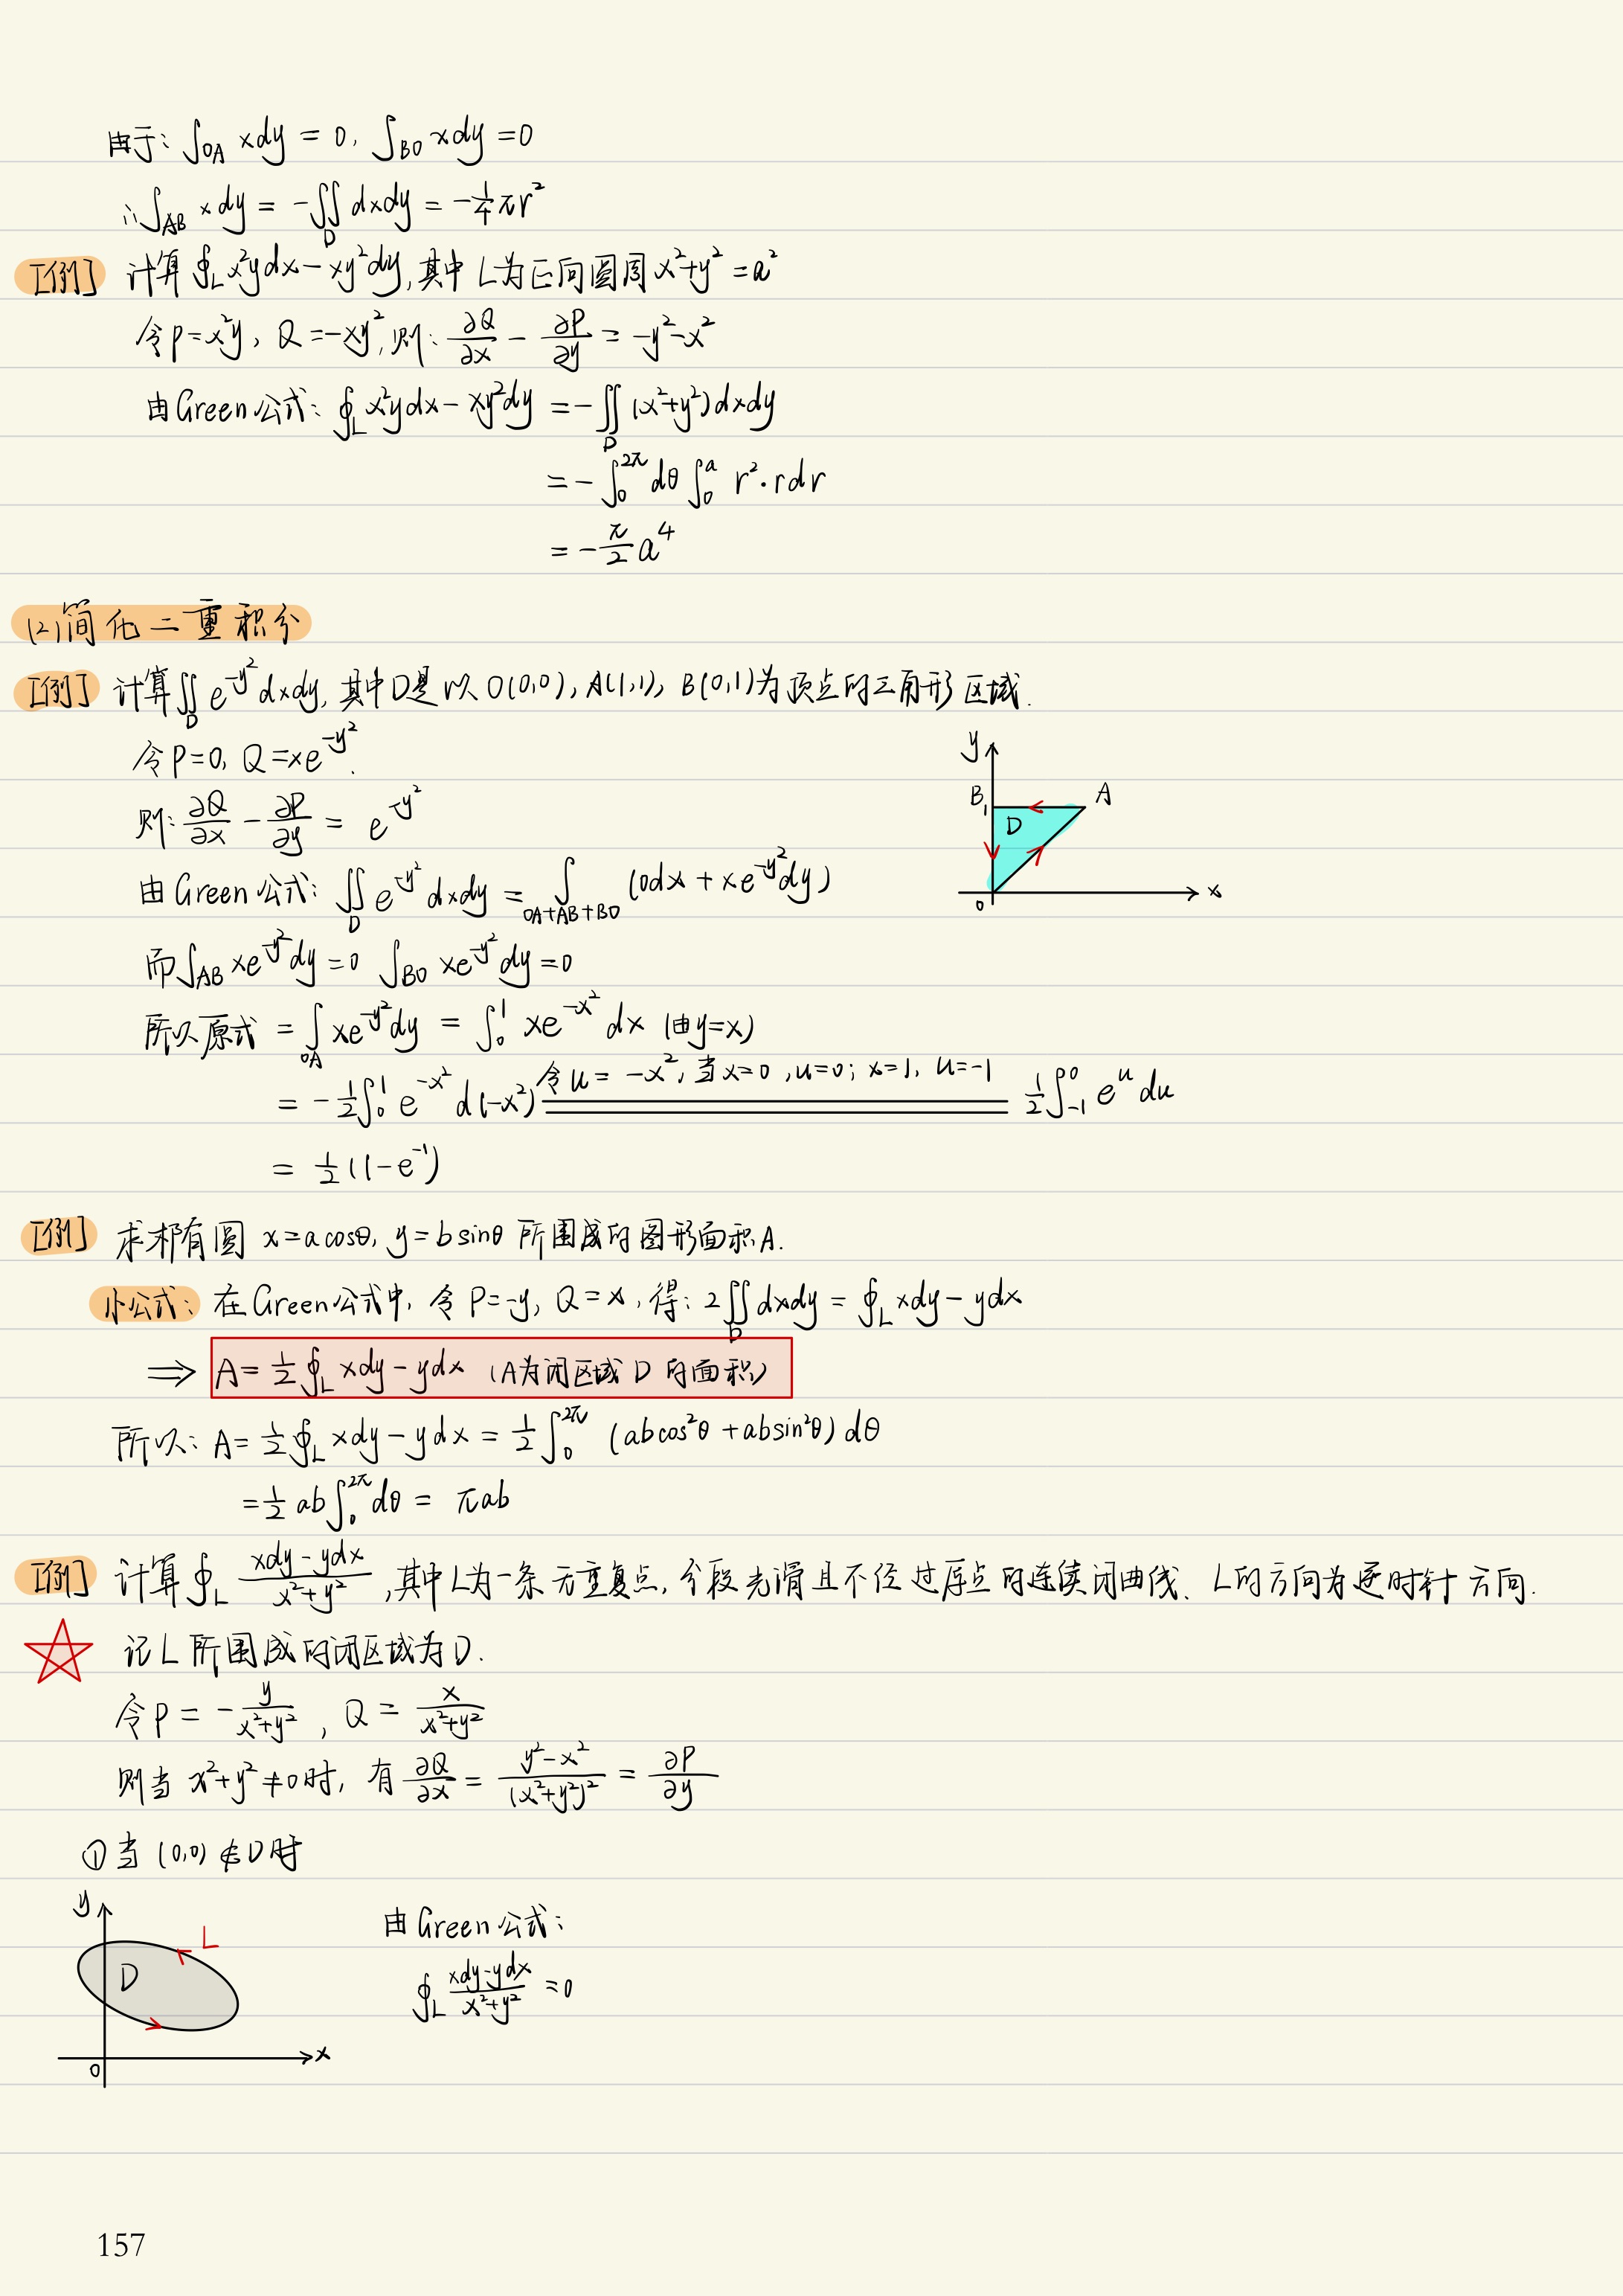 由于: ∫_{OA} xdy = 0, ∫_{BO} xdy = 0
∴ ∫_{AB} xdy = -∬_D dxdy = -\frac{1}{4}πr²
[例] 计算 ∮_L x²ydx - xy²dy, 其中 L为正向圆周 x²+y² = a²
令P=x²y, Q=-xy², 则: \frac{∂Q}{∂x} - \frac{∂P}{∂y} = -y²-x²
由Green公式: ∮_L x²ydx - xy²dy = -∬_D (x²+y²)dxdy
= -∫_0^{2π} dθ ∫_0^a r²·rdr
= -\frac{π}{2}a⁴
(2)简化二重积分
[例] 计算∬_D e^{-y²}dxdy, 其中D是以O(0,0), A(1,1), B(0,1)为顶点的三角形区域.
令P=0, Q=xe^{-y²}.
则: \frac{∂Q}{∂x} - \frac{∂P}{∂y} = e^{-y²}
y
B 1
A
D
0
x
由Green公式: ∬_D e^{-y²}dxdy = ∫_{OA+AB+BO} (0dx + xe^{-y²}dy)
而∫_{AB} xe^{-y²}dy=0 ∫_{BO} xe^{-y²}dy=0
所以原式 = ∫_{OA} xe^{-y²}dy = ∫_0^1 xe^{-x²}dx (由y=x)
= -\frac{1}{2}∫_0^1 e^{-x²}d(-x²) 令u=-x², 当x=0, u=0; x=1, u=-1 \frac{1}{2}∫_{-1}^0 e^u du
= \frac{1}{2}(1-e^{-1})
[例] 求椭圆 x=acosθ, y=bsinθ 所围成的图形面积A.
小公式: 在Green公式中, 令P=-y, Q=x, 得: 2∬_D dxdy = ∮_L xdy - ydx
⇒ A = \frac{1}{2}∮_L xdy - ydx (A为闭区域 D 的面积)
所以: A = \frac{1}{2}∮_L xdy - ydx = \frac{1}{2}∫_0^{2π} (abcos²θ + absin²θ)dθ
= \frac{1}{2}ab∫_0^{2π}dθ = πab
[例] 计算∮_L \frac{xdy-ydx}{x²+y²}, 其中L为一条无重复点, 分段光滑且不经过原点的连续闭曲线、L的方向为逆时针方向.
记L所围成的闭区域为D.
令P = -\frac{y}{x²+y²}, Q = \frac{x}{x²+y²}
则当 x²+y²≠0时, 有 \frac{∂Q}{∂x} = \frac{y²-x²}{(x²+y²)²} = \frac{∂P}{∂y}
①当 (0,0)∉D时
y
L
D
0
x
由Green公式:
∮_L \frac{xdy-ydx}{x²+y²} = 0
157